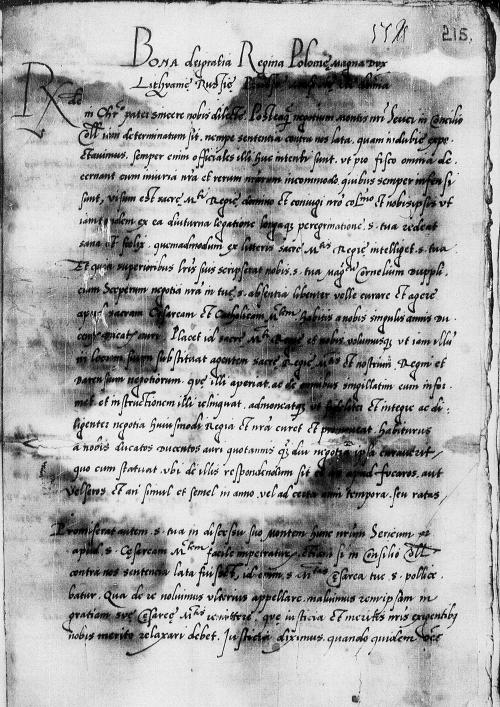 215.
BONA dei gratia Regina Polonię Magna Dux
Lithuanię Russię
Rde
in Chro pater sincere nobis dilecte. Posteaq negotium montis nri Serici in Concilio
Coll. iam determinatum sit, nempe sententia contra nos lata, quam indubie expe
ctavimus, semper enim officiales illi huc intenti sunt, ut pro fisco omnia de
cernant cum iniuria nra et rerum nrarum incommodo, quibus semper infensi
sunt, visum est sacrę Mti Regię domino et coniugi nro colmo et nobis ipsis ut
iam ex ea diuturna legatione peregrinatione s. tua redeat
sana et felix. quemadmodum ex litteris sacrę Mtis Regię intelliget s. tua
Et quia superioribus lris suis scripserat nobis s. tua Magcum Cornelium Duppli
cium Sceperum negotia nra in tuę s. absentia libenter velle curare et agere
apud sacram Cesaream et Catholicam Mtem habitis a nobis singulis annis du
auri. Placet id sacrę Mti Regię et nobis, volumusq ut iam illu
in locum suum substituat agentem sacrę Regię Mtis et nostrum Regni et
Barensium negotiorum. quę illi aperiat, ac de omnibus sigillatim eum infor
met, et instructionem illi relinquat. admoneatq ut fideliter et integre ac di
ligenter negotia huiusmodi Regia et nra curet et promoveat. habiturus
a nobis ducatos ducentos auri quotannis q diu negotia ipsa curaverit
quo cum statuat, ubi de illis respondendum sit ei apud fucaros, aut
velseros et an simul et semel in anno, vel ad certa anni tempora, seu ratas
Promiserat autem s. tua in discessu suo montem hunc nrum Sericum
apud s. Cesaream Mtem facile impetrare, etiam si in Consilio Coll
contra nos sentencia lata fuisset, id enim s. Mtas Cesarea tuę s. pollice
batur. Qua de re nolumus ulterius appellare, malumus rem ipsam in
gratiam suę Cesareę Mtis remittere, quę iusticia et meritis nris exigentibus
nobis merito relaxari debet. Iusticia diximus, quando quidem